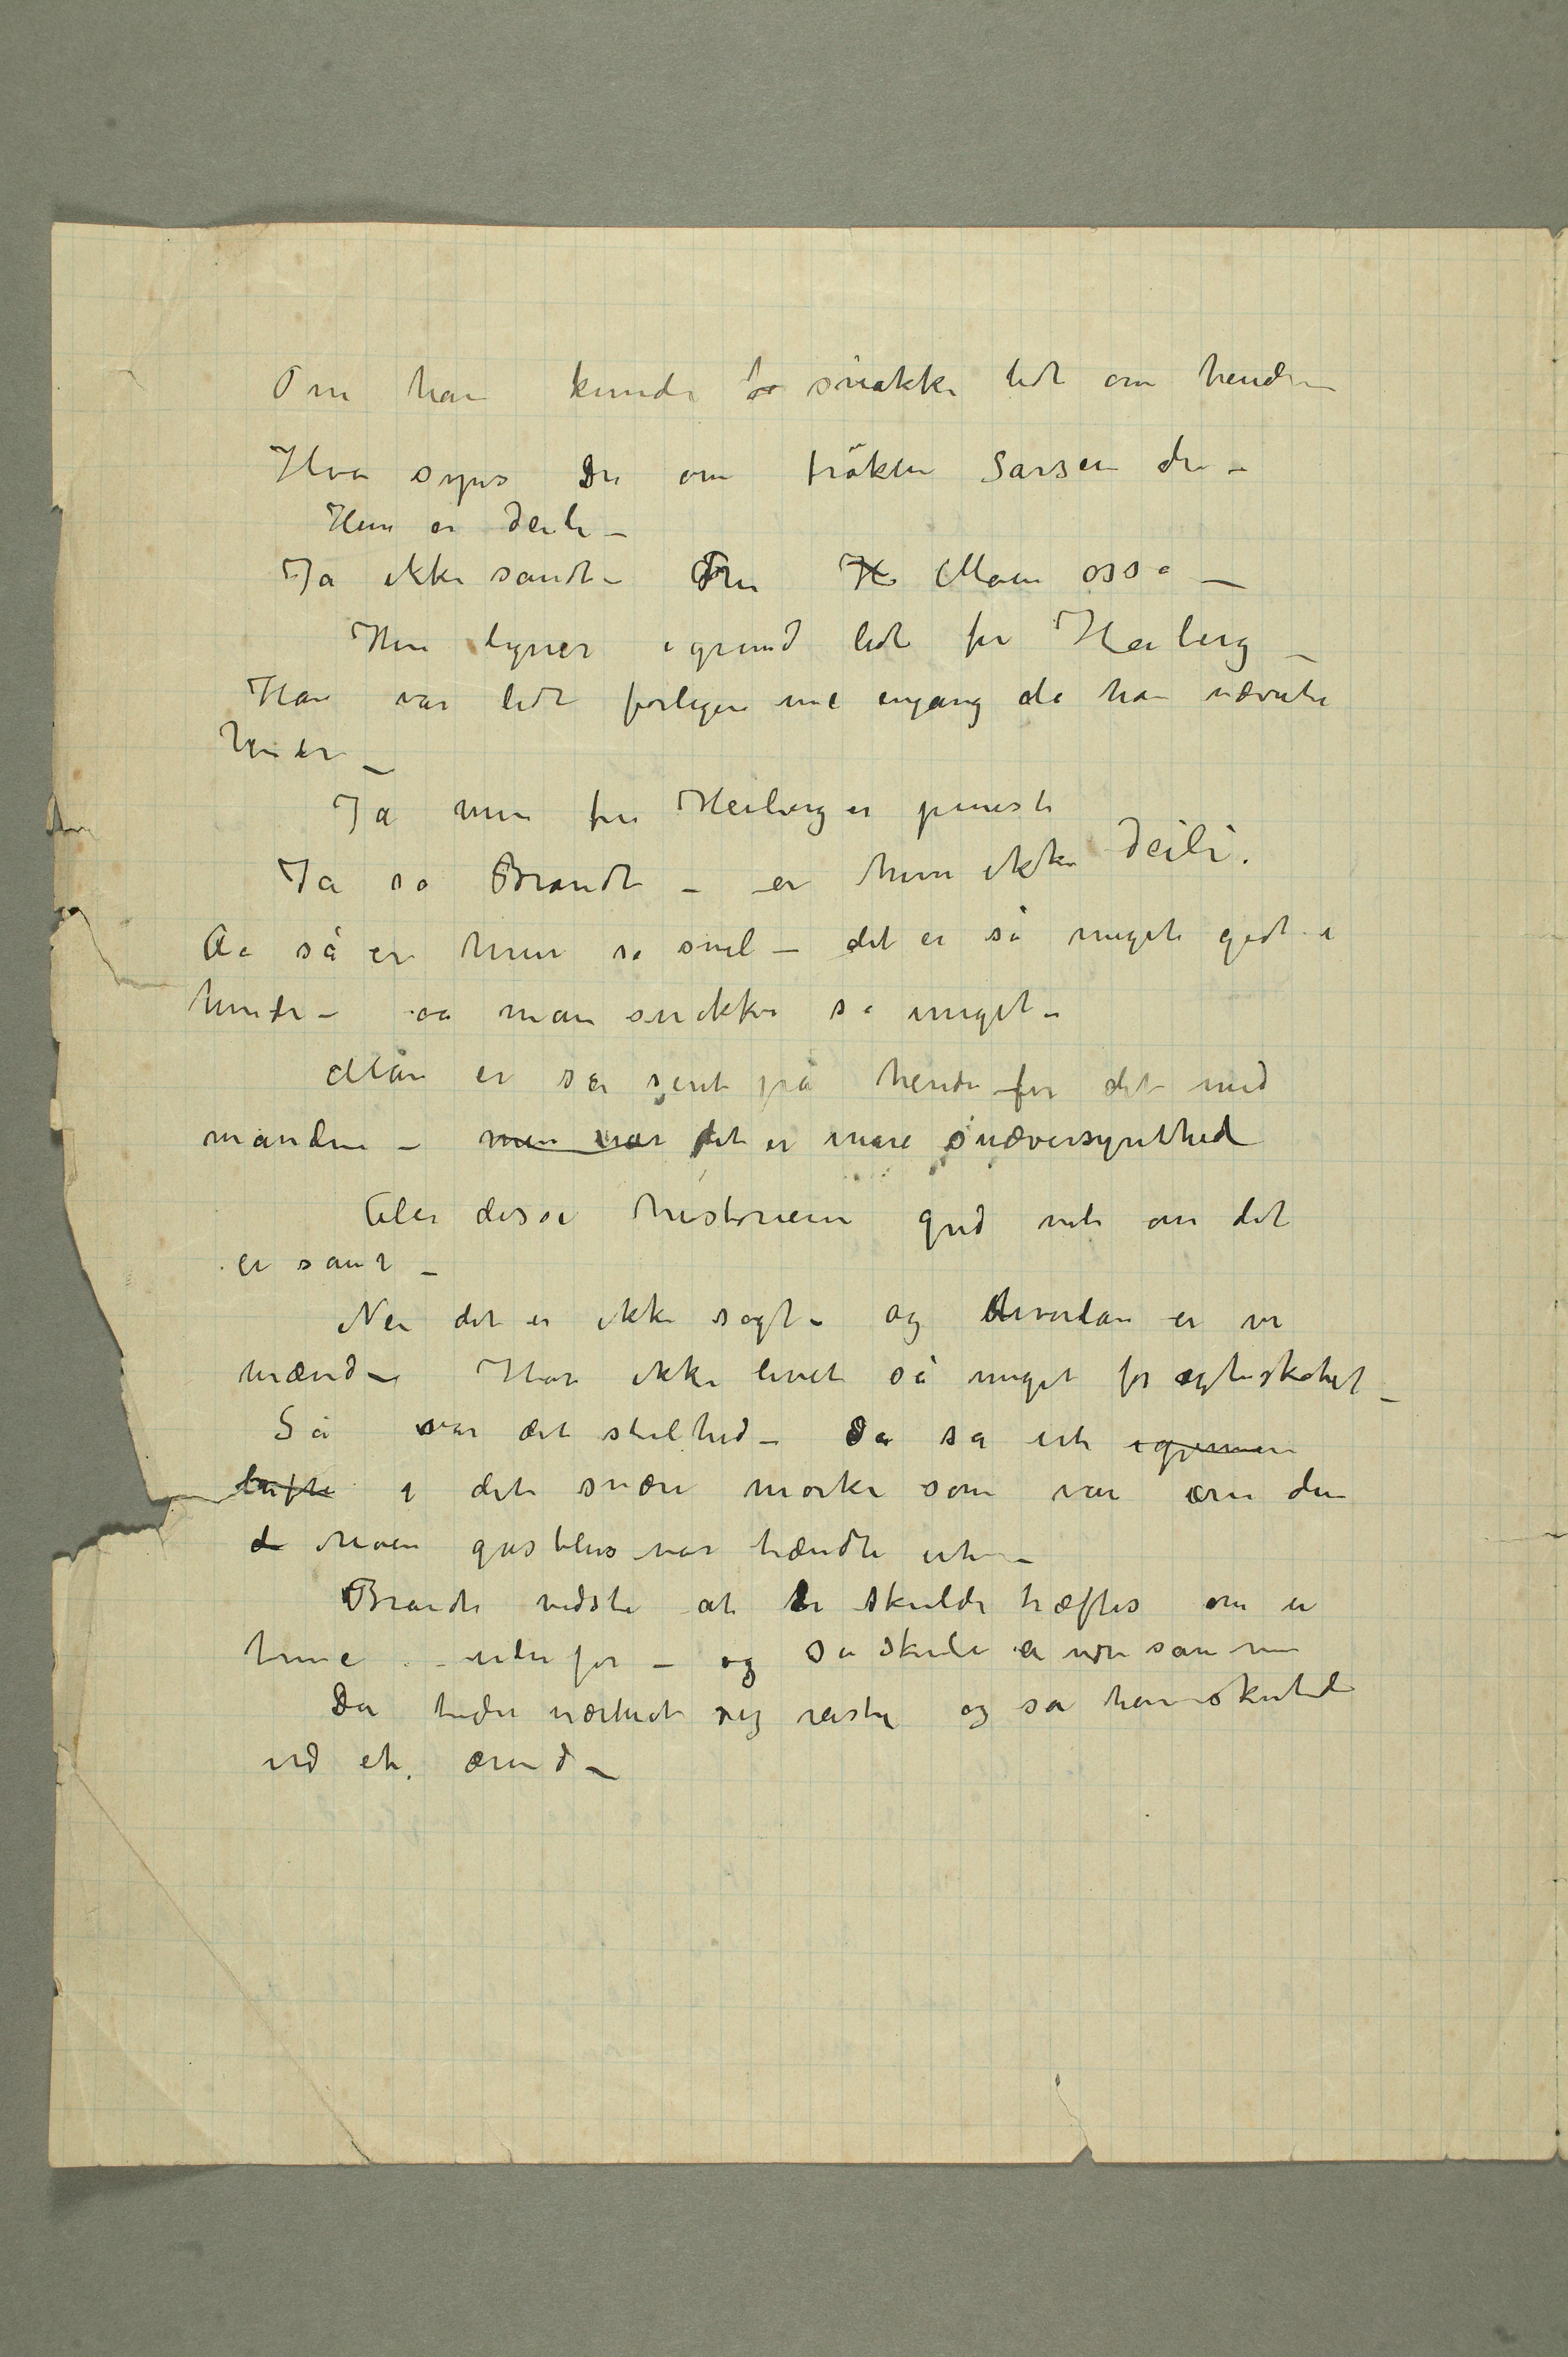 Om han kunde to snakke lidt om hende –
Hva synes De om frøken Larsen du –
Hun er deili –
Ja ikke sandt – Fru H Moen osså –
Hun ligner igrund lidt fru Heiberg –
Han var lidt forlegen me engang da han nævnte
hener –
Ja men fru Heiberg er peneste
Ja sa Brandt – er hun ikke deili.
Aa så er hun så snil – det er så meget godt i
hende – aa man snakker så meget –
Man er så sint på hende for det med
manden – men var det er mere snæversynthed
Eller disse historierne gud vet om det
er sant –
Nei det er ikke sagt – og hvordan er vi
mænd – Har ikke levet så meget før egteskabet –
Så var det stilhed – Da sa ut igjennem
lufte i det svære mørke som var om dem
d Noen gasblus var tændte ute –
Brandt vidste at de skulde træffes om en
time – udenfor – og så skulde a være sammen
Da tiden nærmet sig reiste og sa han skulde
ud et ærend –